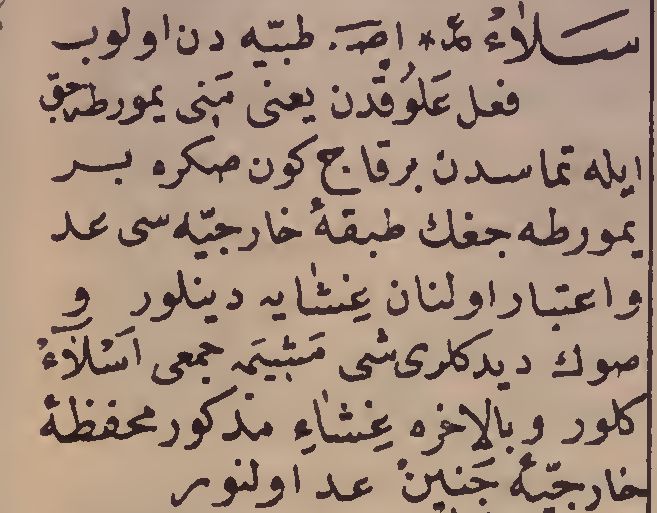 سَلاٰءُ مد* اصـ. طبیّه دن اولوب
فعل عَلوُقدن یعنی مَنِی یمورطه جق
ایله تماسدن برقاج کون صکره بـر
یمورطه جغك طبقهٔ خارجیّه سی عد
و اعتبار اولنان غِشٰایه دینلور و
صوك دیدکلری شی مَشِیمَه جمعی اَسْلاَءْ
کلور و بالاخره غِشٰاءِ مذکور محفظهٔ
خارجیّهٔ جَنِین عد اولنور